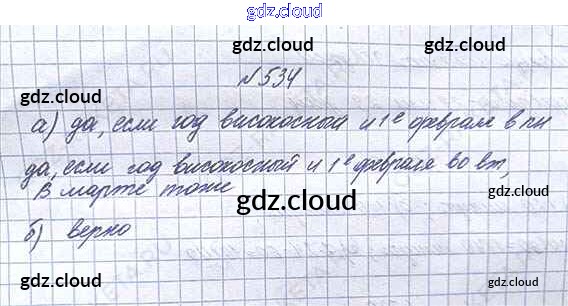 gdz.cloud
gdz.cloud gdz.cloud
№534
gdz.cloud
а) да, если год високосный и 1е февраля в пн
gdz.cloud
да, если год високосный и 1е февраля во вт,
В марте тоже
gdz.cloud
б) верно
gdz.cloud gdz.cloud